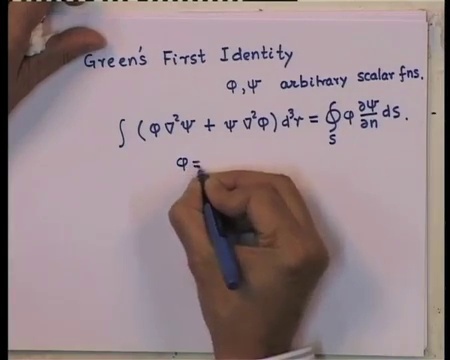 Green's First Identity
φ, ψ arbitrary scalar fns.
∫ (φ ∇²ψ + ψ ∇²φ) d³r = ∮_S φ ∂ψ/∂n dS.
φ =